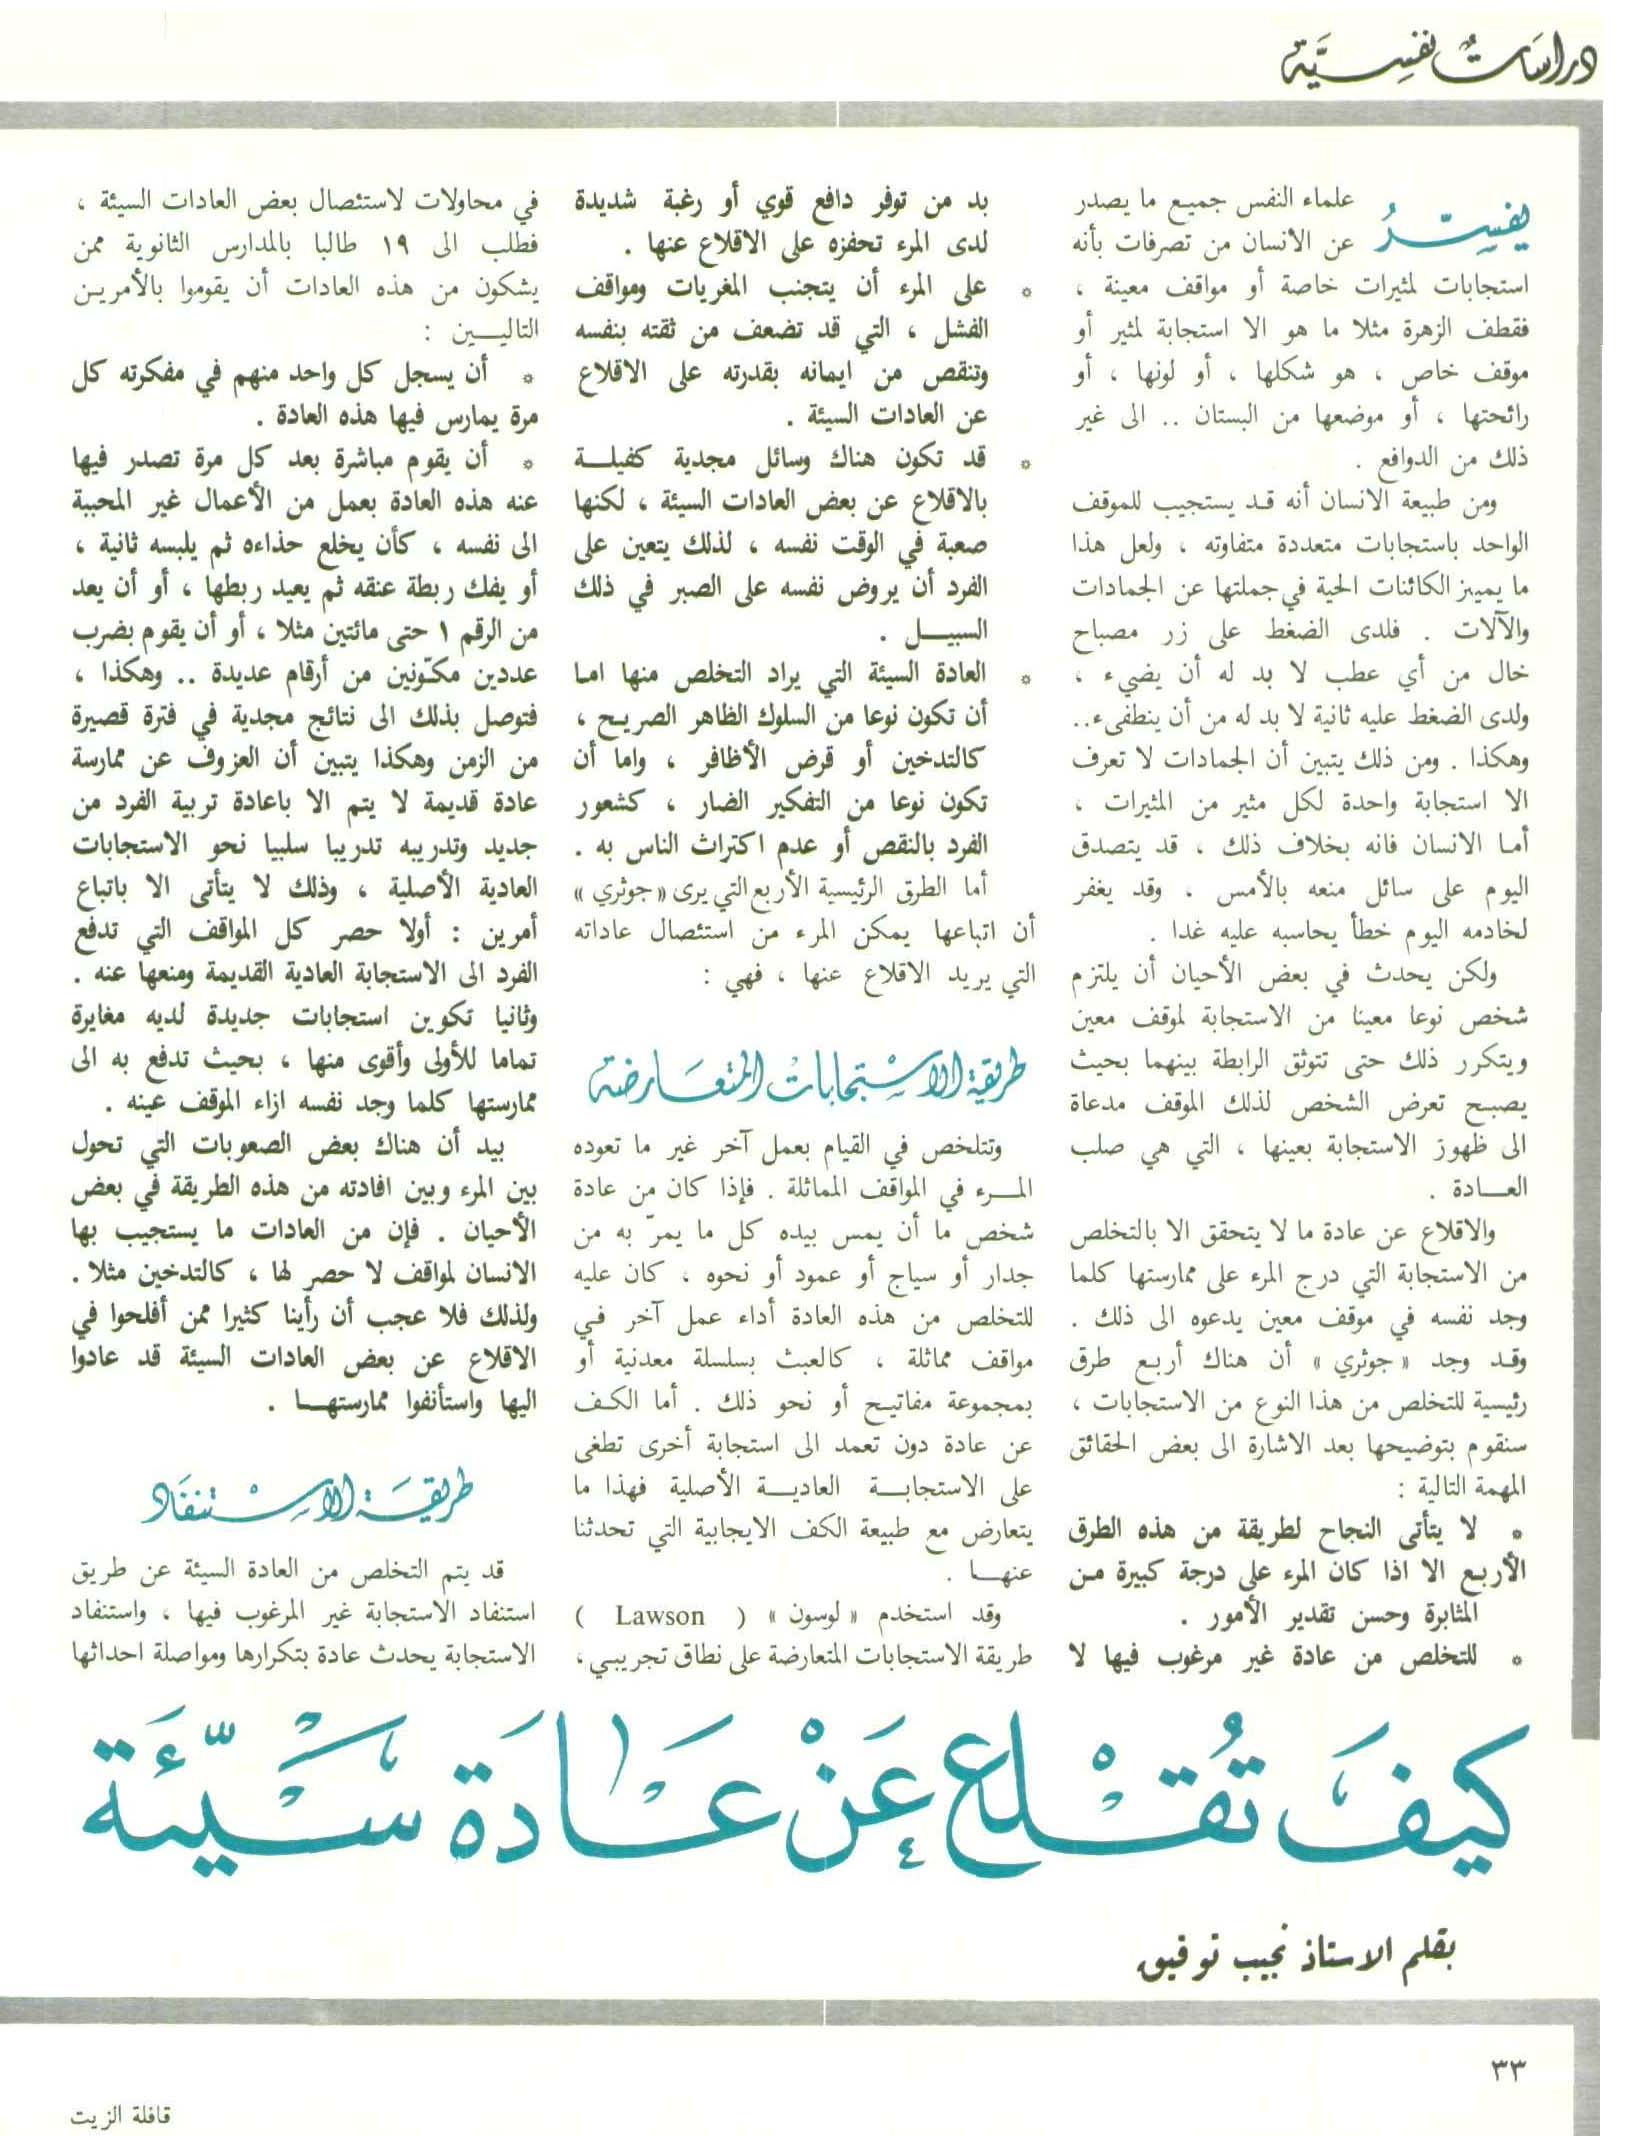 دراسات نفسية
يفسر علماء النفس جميع ما يصدر
عن الانسان من تصرفات بأنه
استجابات لمثيرات خاصة أو مواقف معينة ،
فقطف الزهرة مثلا ما هو الا استجابة لمثير أو
موقف خاص ، هو شكلها ، أو لونها ، أو
رائحتها ، أو موضعها من البستان .. الى غير
ذلك من الدوافع .
ومن طبيعة الانسان أنه قد يستجيب للموقف
الواحد باستجابات متعددة متفاوته ، ولعل هذا
ما يميز الكائنات الحية في جملتها عن الجمادات
والآلات . فلدى الضغط على زر مصباح
خال من أي عطب لا بد له أن يضيء ،
ولدى الضغط عليه ثانية لا بد له من أن ينطفىء..
وهكذا . ومن ذلك يتبين أن الجمادات لا تعرف
الا استجابة واحدة لكل مثير من المثيرات ،
أما الانسان فانه بخلاف ذلك ، قد يتصدق
اليوم على سائل منعه بالأمس . وقد يغفر
لخادمه اليوم خطأ يحاسبه عليه غدا .
ولكن يحدث في بعض الأحيان أن يلتزم
شخص نوعا معينا من الاستجابة لموقف معين
ويتكرر ذلك حتى تتوثق الرابطة بينهما بحيث
يصبح تعرض الشخص لذلك الموقف مدعاة
الى ظهور الاستجابة بعينها ، التي هي صلب
العادة .
والاقلاع عن عادة ما لا يتحقق الا بالتخلص
من الاستجابة التي درج المرء على ممارستها كلما
وجد نفسه في موقف معين يدعوه الى ذلك .
وقد وجد « جوثري » أن هناك أربع طرق
رئيسية للتخلص من هذا النوع من الاستجابات ،
سنقوم بتوضيحها بعد الاشارة الى بعض الحقائق
المهمة التالية :
* لا يتأتى النجاح لطريقة من هذه الطرق
الأربع الا اذا كان المرء على درجة كبيرة من
المثابرة وحسن تقدير الأمور .
* للتخلص من عادة غير مرغوب فيها لا
بد من توفر دافع قوي أو رغبة شديدة
لدى المرء تحفزه على الاقلاع عنها .
* على المرء أن يتجنب المغريات ومواقف
الفشل ، التي قد تضعف من ثقته بنفسه
وتنقص من ايمانه بقدرته على الاقلاع
عن العادات السيئة .
* قد تكون هناك وسائل مجدية كفيلة
بالاقلاع عن بعض العادات السيئة ، لكنها
صعبة في الوقت نفسه ، لذلك يتعين على
الفرد أن يروض نفسه على الصبر في ذلك
السبيل .
* العادة السيئة التي يراد التخلص منها اما
أن تكون نوعا من السلوك الظاهر الصريح ،
كالتدخين أو قرض الأظافر ، واما أن
تكون نوعا من التفكير الضار ، كشعور
الفرد بالنقص أو عدم اكتراث الناس به .
أما الطرق الرئيسية الأربع التي يرى « جوثري »
أن اتباعها يمكن المرء من استئصال عاداته
التي يريد الاقلاع عنها ، فهي :
طريقة الاستجابات المتعارضة
وتتلخص في القيام بعمل آخر غير ما تعوده
المرء في المواقف المماثلة . فإذا كان من عادة
شخص ما أن يمس بيده كل ما يمرّ به من
جدار أو سياج أو عمود أو نحوه ، كان عليه
للتخلص من هذه العادة أداء عمل آخر في
مواقف مماثلة ، كالعبث بسلسلة معدنية أو
بمجموعة مفاتيح أو نحو ذلك . أما الكف
عن عادة دون تعمد الى استجابة أخرى تطغى
على الاستجابة العادية الأصلية فهذا ما
يتعارض مع طبيعة الكف الايجابية التي تحدثنا
عنها .
وقد استخدم « لوسون » ( Lawson )
طريقة الاستجابات المتعارضة على نطاق تجريبي،
في محاولات لاستئصال بعض العادات السيئة ،
فطلب الى ١٩ طالبا بالمدارس الثانوية ممن
يشكون من هذه العادات أن يقوموا بالأمرين
التاليين :
* أن يسجل كل واحد منهم في مفكرته كل
مرة يمارس فيها هذه العادة .
* أن يقوم مباشرة بعد كل مرة تصدر فيها
عنه هذه العادة بعمل من الأعمال غير المحببة
الى نفسه ، كأن يخلع حذاءه ثم يلبسه ثانية ،
أو يفك ربطة عنقه ثم يعيد ربطها ، أو أن يعد
من الرقم ١ حتى مائتين مثلا ، أو أن يقوم بضرب
عددين مكوّنين من أرقام عديدة .. وهكذا ،
فتوصل بذلك الى نتائج مجدية في فترة قصيرة
من الزمن وهكذا يتبين أن العزوف عن ممارسة
عادة قديمة لا يتم الا باعادة تربية الفرد من
جديد وتدريبه تدريبا سلبيا نحو الاستجابات
العادية الأصلية ، وذلك لا يتأتى الا باتباع
أمرين : أولا حصر كل المواقف التي تدفع
الفرد الى الاستجابة العادية القديمة ومنعها عنه .
وثانيا تكوين استجابات جديدة لديه مغايرة
تماما للأولى وأقوى منها ، بحيث تدفع به الى
ممارستها كلما وجد نفسه ازاء الموقف عينه .
بيد أن هناك بعض الصعوبات التي تحول
بين المرء وبين افادته من هذه الطريقة في بعض
الأحيان . فإن من العادات ما يستجيب بها
الانسان لمواقف لا حصر لها ، كالتدخين مثلا .
ولذلك فلا عجب أن رأينا كثيرا ممن أفلحوا في
الاقلاع عن بعض العادات السيئة قد عادوا
اليها واستأنفوا ممارستها .
طريقة الاستنفاد
قد يتم التخلص من العادة السيئة عن طريق
استنفاد الاستجابة غير المرغوب فيها ، واستنفاد
الاستجابة يحدث عادة بتكرارها ومواصلة احداثها
كيفَ تُقْلِع عَنْ عَادَة سَيِّئَة
بقلم الاستاذ نجيب توفيق
٣٣
قافلة الزيت